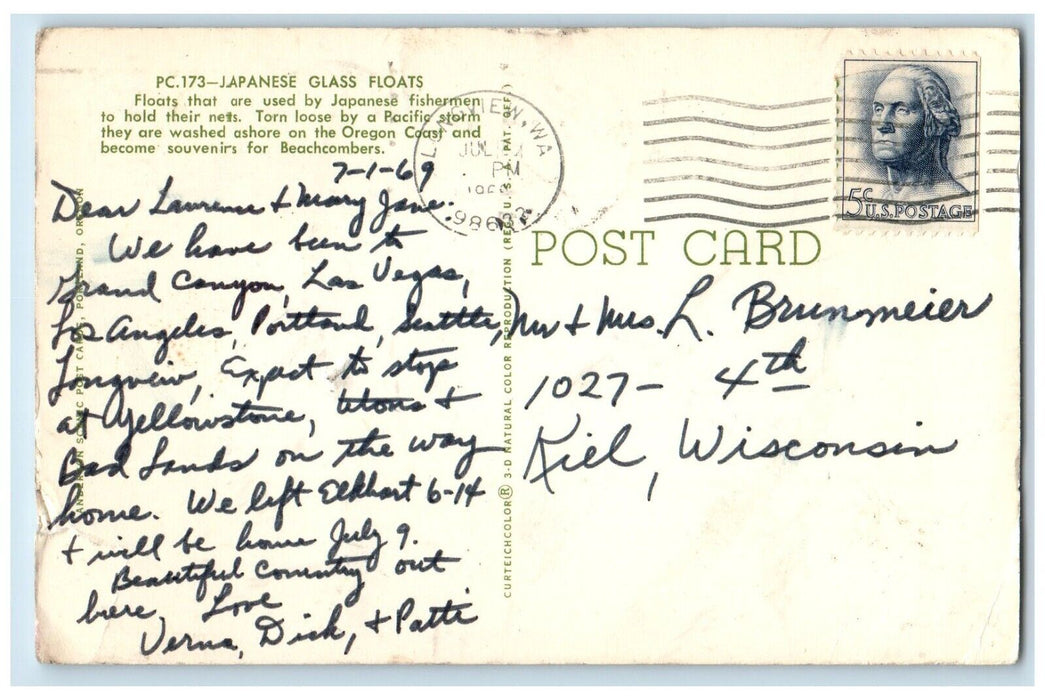 PC.173—JAPANESE GLASS FLOATS
Floats that are used by Japanese fishermen
to hold their nets. Torn loose by a Pacific storm
they are washed ashore on the Oregon Coast and
become souvenirs for Beachcombers.
7-1-69
Dear Lawrence + Mary Jane.
We have been to
Grand Canyon, Las Vegas,
Los Angeles, Portland, Seattle,
Longveiw, Expect to stop
at Yellowstone, +
Bad Lands on the way
home. We left Elkhart 6-14
+ will be home July 9.
Beautiful Country out
here, Love
Verna, Dick, + Patti
CURTEICHCOLOR® 3-D NATURAL COLOR REPRODUCTION (REG. U.S.A. PAT. OFF.)
SCENIC POST CARDS, PORTLAND, OREGON
LONGVIEW, WA
JUL
PM
POST CARD
5¢ U.S. POSTAGE
Mr + Mrs. L. Brunmeier
1027- 4th
Kiel, Wisconsin